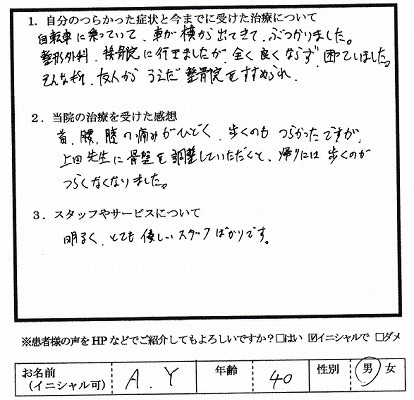 1．自分のつらかった症状と今までに受けた治療について
自転車に乗っていて、車が横から出てきて、ぶつかりました。
整形外科、接骨院に行きましたが全く良くならず困っていました。
そんな折、友人からうえだ整骨院をすすめられ、
2．当院の治療を受けた感想
首、腰、膝の痛みがひどく、歩くのもつらかったですが、
上田先生に骨盤を調整していただくと、帰りには歩くのが
つらくなくなりました。
3．スタッフやサービスについて
明るく、とても優しいスタッフばかりです。
※患者様の声をHPなどでご紹介してもよろしいですか？□はい ☑イニシャルで □ダメ
お名前（イニシャル可） A.Y 年齢 40 性別 男 女